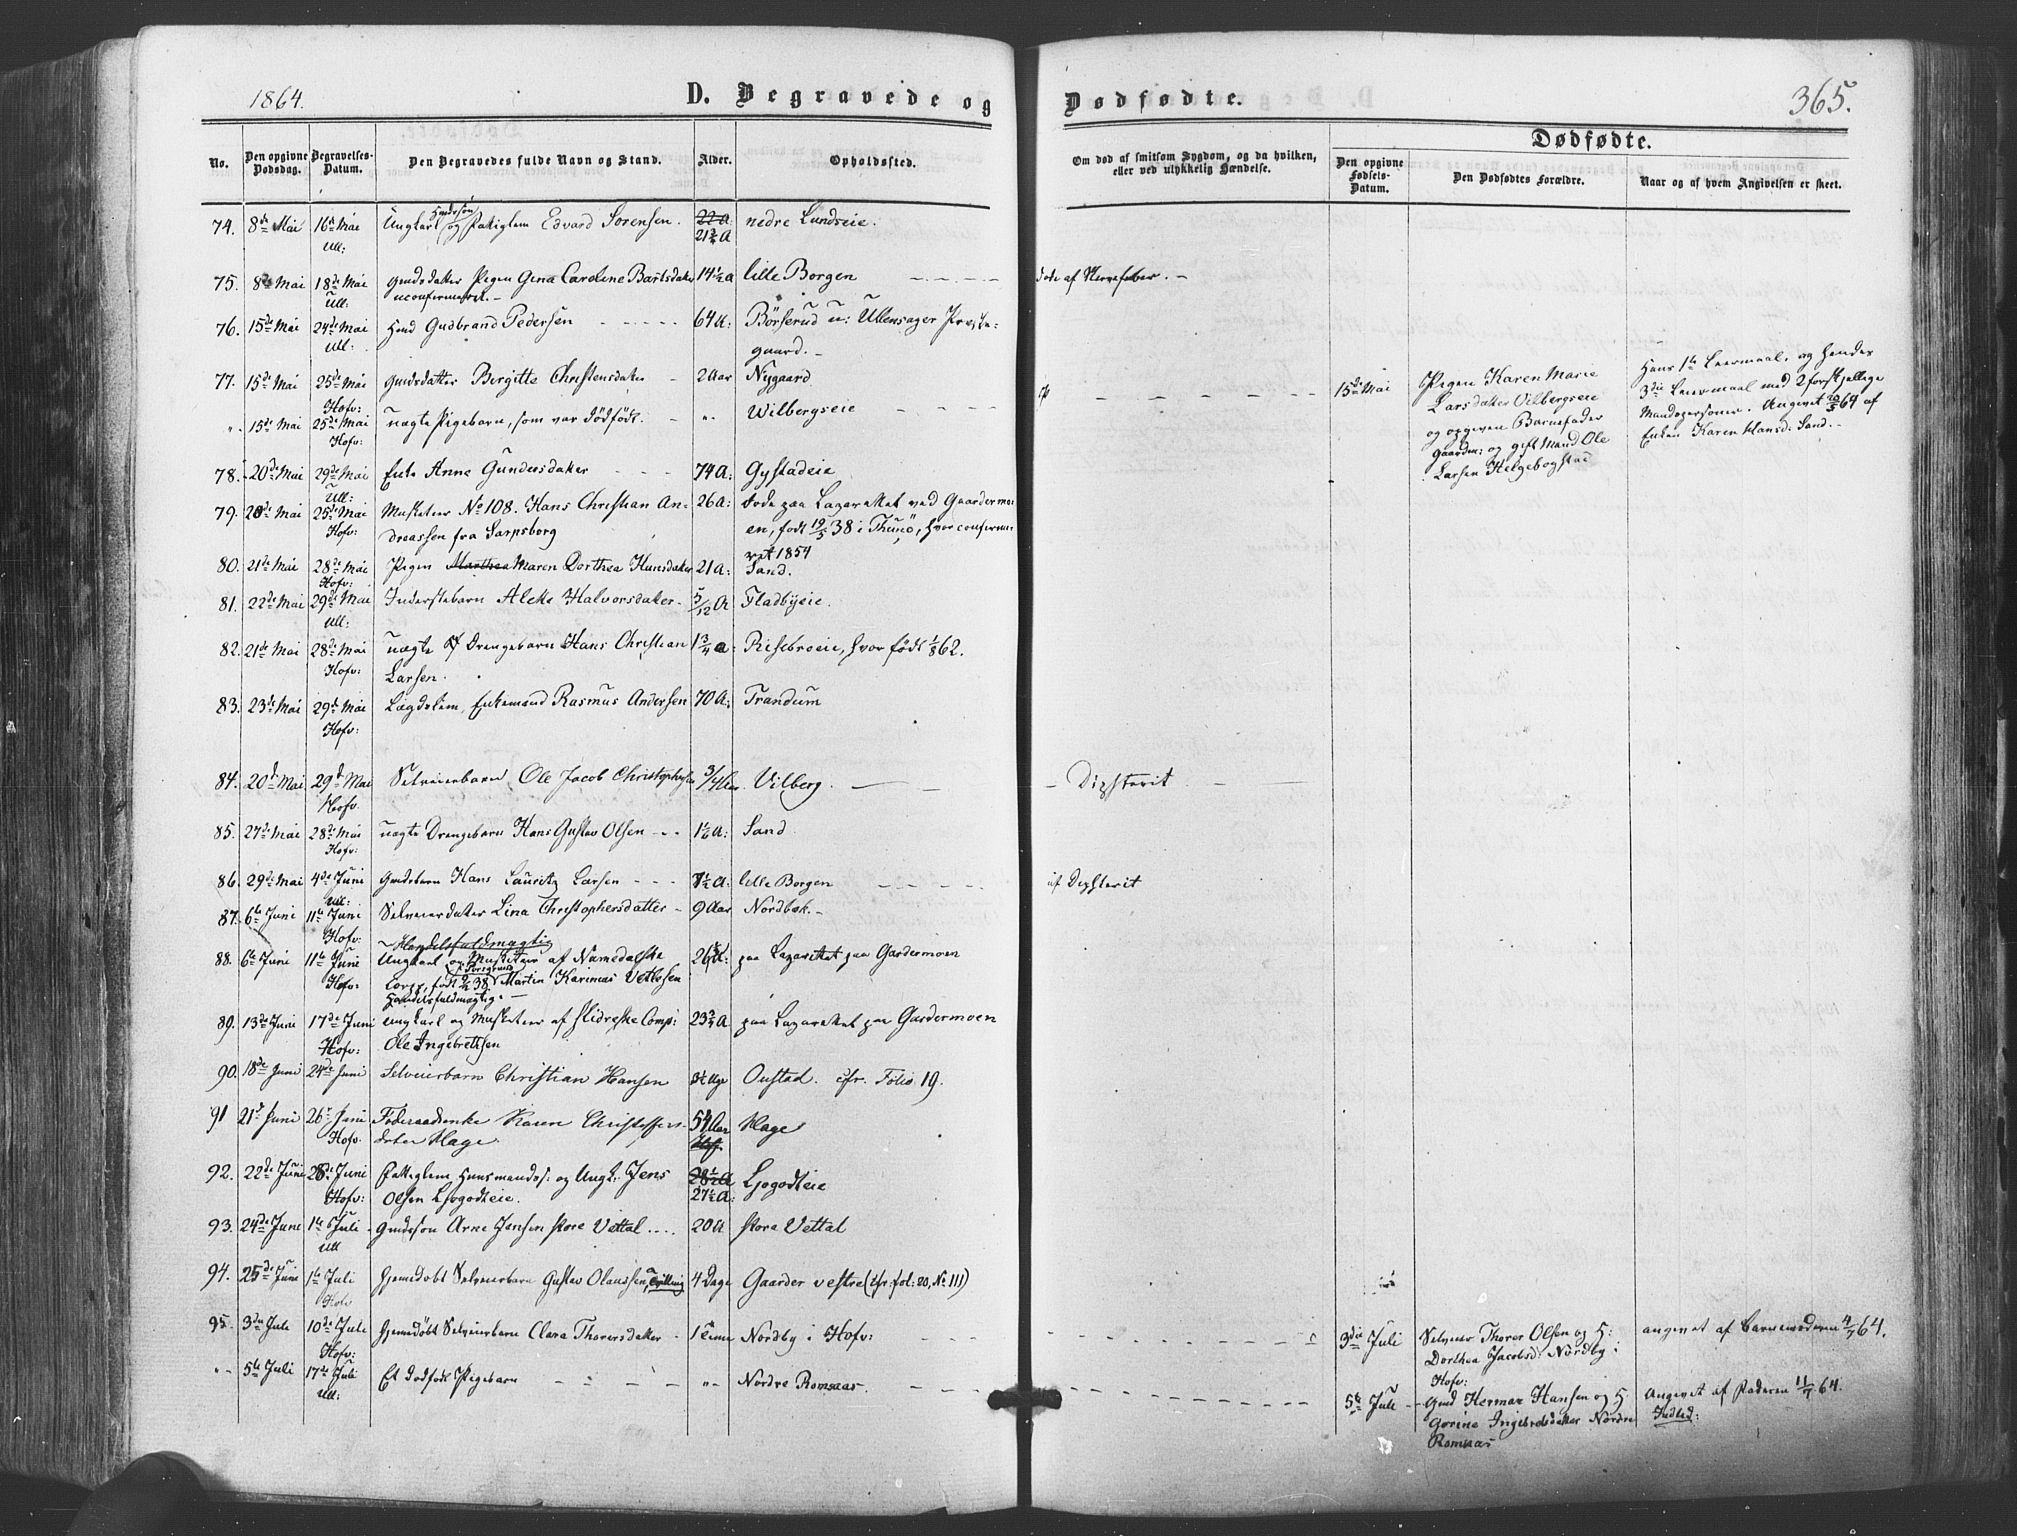 1864.
D. Begravede og
Dødfødte.
365.
No.
Den opgivne Dødsdag.
Begravelses-Datum.
Den Begravedes fulde Navn og Stand.
Alder.
Opholdssted.
Om død af smitsom Sygdom, og da hvilken, eller ved ulykkelig Hændelse.
Dødfødte.
Den opgivne Fødsels-Datum.
Den Dødfødtes Forældre.
Naar og af hvem Angivelsen er skeet.
74. 8de Mai 16de Mai Ungkarl og Edvard Sørensen. 22 A. nedre Lundseie.
Ull: 21 3/4 A
75. 8de Mai 18de Mai Gmdsdatter Pigen Gina Caroline Bartsdatter 14 1/2 A lille Borgen døde af Nervefeber.
Ull: uconfirmeret.
76. 15de Mai 24de Mai Gmd Gudbrand Pedersen 64 A: Børserud u: Ullensager Præste-
Ull: gaard.
77. 15de Mai 25de Mai Gmdsdatter Bergitte Christensdatter 2 Aar Nygaard
Hofv:
" 15de Mai 25de Mai uægte Pigebarn, som var dødfødt. " Wilbergseie
Hofv:
15de Mai Pigen Karen Marie
Larsdatter Vilbergseie
og opgiven Barnefader
Gaardm: og gift Mand Ole
Larsen Helgebogstad
Hans 1ste Leiermaal, og hendes
3die Leiermaal med 2 forskjellige
Mandspersoner. Angivet 20/5 64 af
Enken Karen Hansd: Sand.
78. 20de Mai 29de Mai Enke Anne Gundersdatter 74 A: Gystadeie
Ull:
79. 20de Mai 25de Mai Musketeer No 108. Hans Christian An- 26 A: døde paa Lazarettet ved Gardermo-
Hofv: dreassen fra Sarpsborg en, født 19/5 38 i Thunø, hvor confirme-
ret 1854
80. 21de Mai 28de Mai Pigen Marthea Maren Dorthea Hansdatter 21 A: Sand.
Hofv:
81. 22de Mai 29de Mai Inderstebarn Aleta Halvorsdatter 5/12 A Fladbyeie.
Ull:
82. 21de Mai 28de Mai uægte Drengebarn Hans Christian 1 3/4 A: Risebroeie, hvor født 1/8 62.
Hofv: Larsen.
83. 23de Mai 29de Mai Lægdslem, Enkemand Rasmus Andersen 70 A: Trandum
Hofv:
84. 20de Mai 29de Mai Selveierbarn, Ole Jacob Christophersen 3/4 Aar. Vilberg. Dipsterit
Hofv.
85. 27de Mai 28de Mai uægte Drengebarn Hans Gustav Olsen 1 1/2 A: Sand
Hofv:
86. 29de Mai 4de Juni Gmdsbarn Hans Lauritz Larsen 1/2 A: lille Borgen af Dipsterit
Ull:
87. 6te Juni 11te Juni Selveierdatter Lina Christophersdatter 9 Aar Nordbæk.
Hofv:
Handelsfuldmægtig
88. 6te Juni 11te Juni Ungkarl og Musketeer af Namdalske 26 A: paa Lazarettet paa Gardermoen
Hofv: Corps, født 38 Martin Karinius Vetlesen
Handelsfuldmægtig.
89. 13de Juni 17de Juni Ungkarl og Musketeer af Slidreske Comp: 23 3/4 A paa Lazarettet paa Gardermoen
Hofv: Ole Ingebretsen
90. 18de Juni 24de Juni Selveierbarn Christian Hansen Uge Onstad. cfr. Folio 19.
91 21de Juni 26de Juni Føderaadsenke Karen Christoffers- 54 Aar Hage
Hofv. datter Hage.
92. 22de Juni 28de Juni Fattiglem Huusmandss: og Ungk: Jens 28 1/2 A Ljogodteie
Hofv: Olsen Ljogodteie. 27 1/2 A:
93. 24de Juni 1ste Juli Gmdssøn Arne Jensen store Vettal 20 A store Vettal
Ull
94. 25de Juni 1ste Juli Hjemedøbt Selveierbarn Gustav Olaussen, Tvilling 4 Dage Gaarder vestre (cfr. fol: 20, No 111)
Hofv
95. 3die Juli 10de Juli Hjemedøbt Selveierbarn Clara Thorersdatter 1 Time Nordby i Hofv:
Hofv:
3die Juli Selveier Thorer Olsen og H:
Dorthea Jacobsd: Nordby i
Hofv:
angivet af Barnemoderen 4/7 64.
" 5te Juli 17de Juli Et dødfødt Pigebarn " Nordre Romsaas.
Ull:
5te Juli Gmd Herman Hansen og H
Gorine Ingebretsdatter Nordre
Romsaas
Angivet af Faderen 11/7 64.
Indled: